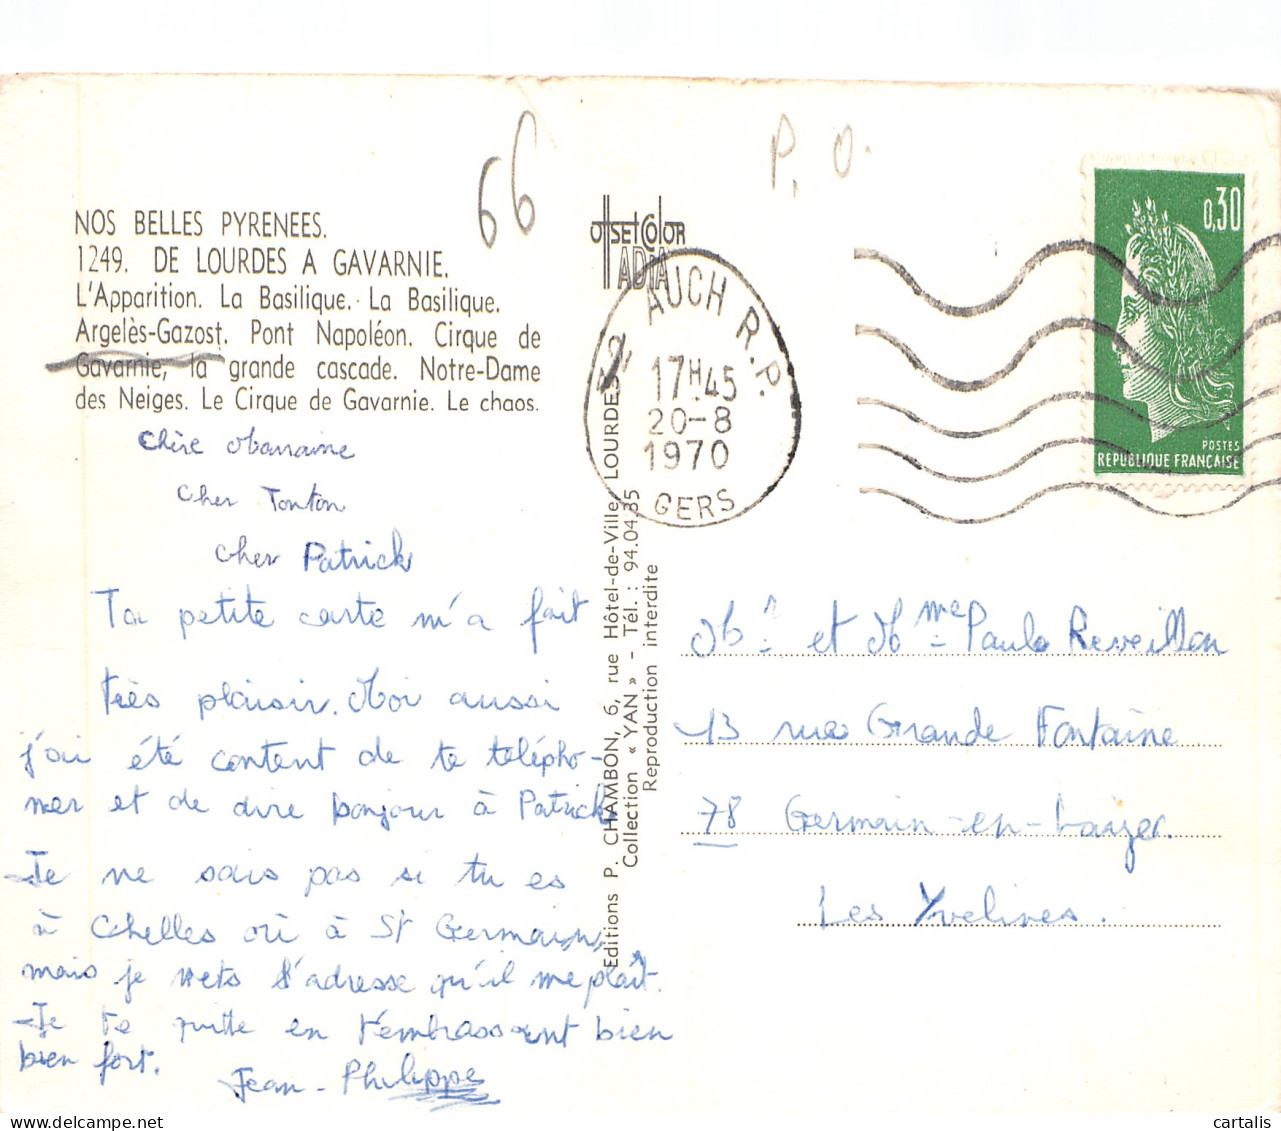 66
P. O.
NOS BELLES PYRENEES.
1249. DE LOURDES A GAVARNIE.
L'Apparition. La Basilique. La Basilique.
Argelès-Gazost. Pont Napoléon. Cirque de
Gavarnie, la grande cascade. Notre-Dame
des Neiges. Le Cirque de Gavarnie. Le chaos.
Chère
cher Tonton
cher Patrick
Ta petite carte m'a fait
très plaisir. Moi aussi
j'ai été content de te télépho-
ner et de dire bonjour à Patrick
Je ne sais pas si tu es
à Chelles où à St Germain,
mais je mets l'adresse qu'il me plaît.
Je te quitte en t'embrassant bien
bien fort.
Jean-Philippe
OffSET COlOR
IADIA
AUCH R.P.
17H45
20-8
1970
GERS
Editions P. CHAMBON, 6, rue Hôtel-de-Ville, LOURDES
Collection « YAN » - Tél. : 94.04.35
Reproduction interdite
0,30
POSTES
REPUBLIQUE FRANCAISE
Mr et Mme Paulo Reveillon
13 rue Grande Fontaine
78 Germain-en-Layer.
Les Yvelines.
cartalis.com